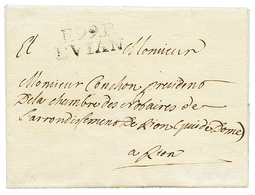 P.99.P.
EVIAN
A Monsieur
Monsieur Conchon president
De la chambre des Notaires de
L'arrondissement De Riom (puy de Dome)
a Riom